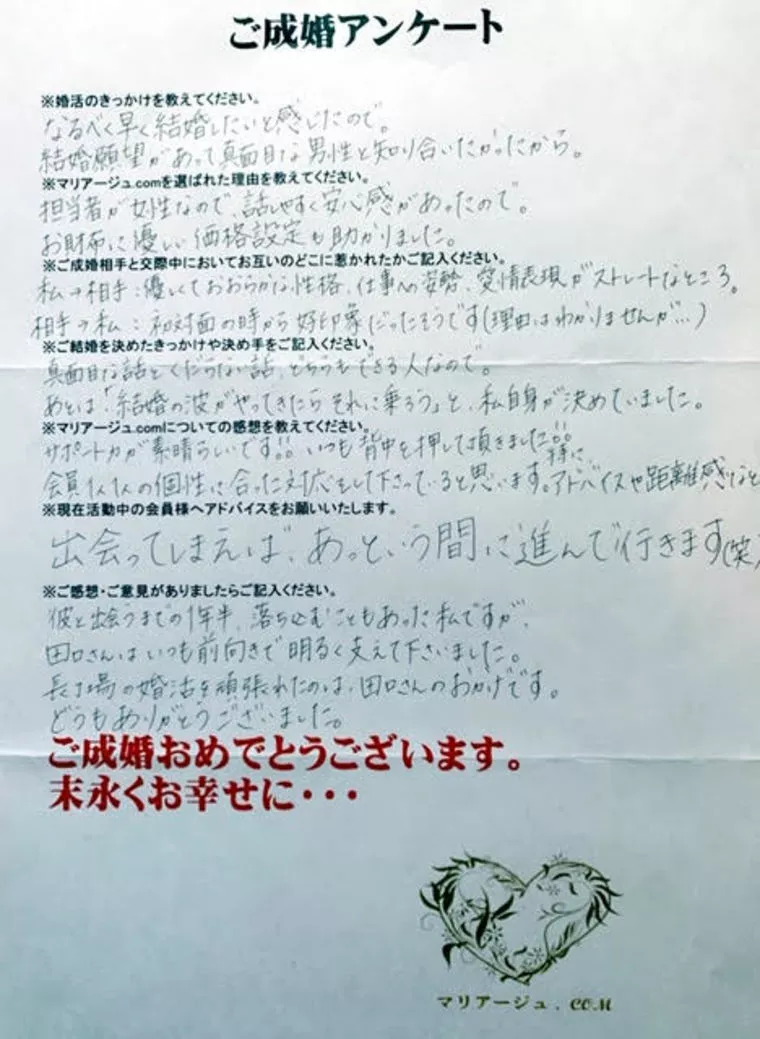 ご成婚アンケート
※婚活のきっかけを教えてください。
なるべく早く結婚したいと感じたので。
結婚願望があって真面目な男性と知り合いたかったから。
※マリアージュ.comを選ばれた理由を教えてください。
担当者が女性なので、話しやすく安心感があったので。
お財布に優しい価格設定も助かりました。
※ご成婚相手と交際中においてお互いのどこに惹かれたかご記入ください。
私→相手：優しくておおらかな性格、仕事への姿勢、愛情表現がストレートなところ。
相手→私：初対面の時から好印象だったそうです(理由はわかりませんが…)
※ご結婚を決めたきっかけや決め手をご記入ください。
真面目な話とくだらない話、どちらもできる人なので。
あとは「結婚の波がやってきたらそれに乗ろう」と、私自身が決めていました。
※マリアージュ.comについての感想を教えてください。
サポート力が素晴らしいです!! いつも背中を押して頂きました!!
特に
会員1人1人の個性に合った対応をして下さっていると思います。アドバイスや距離感など
※現在活動中の会員様へアドバイスをお願いいたします。
出会ってしまえば、あっという間に進んで行きます(笑)
※ご感想・ご意見がありましたらご記入ください。
彼と出会うまでの1年半、落ち込むこともあった私ですが、
田口さんはいつも前向きで明るく支えて下さいました。
長丁場の婚活を頑張れたのは、田口さんのおかげです。
どうもありがとうございました。
ご成婚おめでとうございます。
末永くお幸せに・・・
マリアージュ．COM